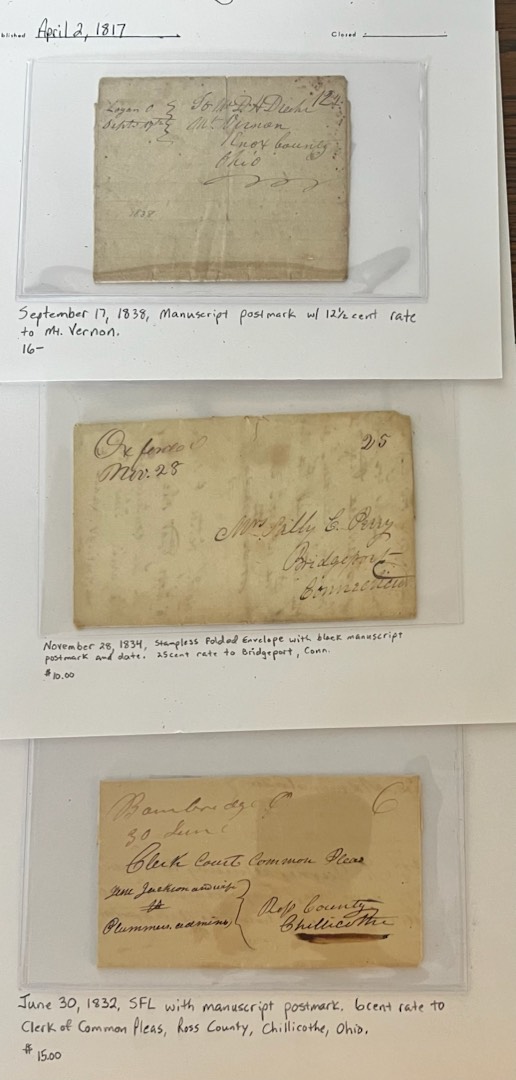 April 2, 1817
Closed
Logan O
Sept. 17th
To Mr. D. H.
12½
Mt. Vernon
Knox County
Ohio
1838
September 17, 1838, Manuscript postmark w/ 12½ cent rate
to Mt. Vernon.
16-
Oxford O
Nov. 28
25
Mrs. Sally C. Perry
Bridgeport
Connecticut
November 28, 1834, Stampless Folded Envelope with black manuscript
postmark and date. 25cent rate to Bridgeport, Conn.
$10.00
Bainbridge O
6
30 June
Clerk Court Common Pleas
Jackson and wife
Plummers. admins
Ross County
Chillicothe
June 30, 1832, SFL with manuscript postmark. 6cent rate to
Clerk of Common Pleas, Ross County, Chillicothe, Ohio.
$15.00